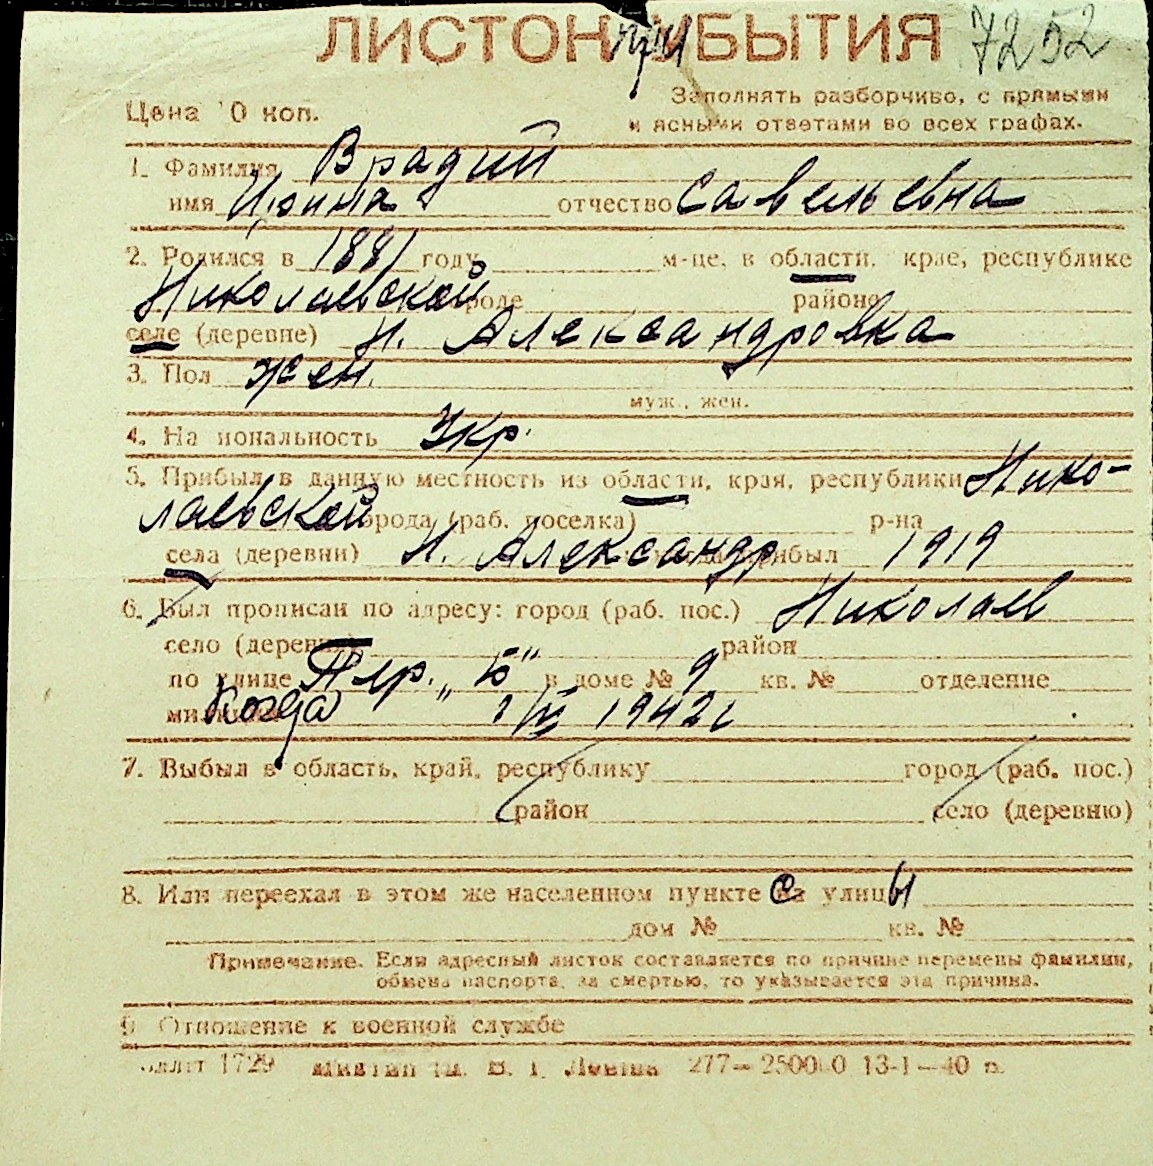 ЛИСТОК при УБЫТИЯ 7252
Цена 10 коп.
Заполнять разборчиво, с прямыми
и ясными ответами во всех графах.
1. Фамилия Врадий
имя Ирина отчество Савельевна
2. Родился в 1881 году м-це, в области, крае, республике
Николаевской городе районе
селе (деревне) Н. Александровка
3. Пол жен.
муж., жен.
4. Национальность Укр.
5. Прибыл в данную местность из области, края, республики Нико-
лаевской города (раб. поселка) р-на
села (деревни) Н. Александр прибыл 1919
6. Был прописан по адресу: город (раб. пос.) Николаев
село (деревня) район
по улице Тер. „Б" в доме № 9 кв. № отделение
милиции Когда 1/III 1942 г
7. Выбыл в область, край, республику город (раб. пос.)
район село (деревню)
8. Или переехал в этом же населенном пункте с улицы
дом № кв. №
Примечание. Если адресный листок составляется по причине перемены фамилии,
обмена паспорта, за смертью, то указывается эта причина.
9. Отношение к военной службе
1729 им. В. І. Леніна 277—250000 13-1—40 п.